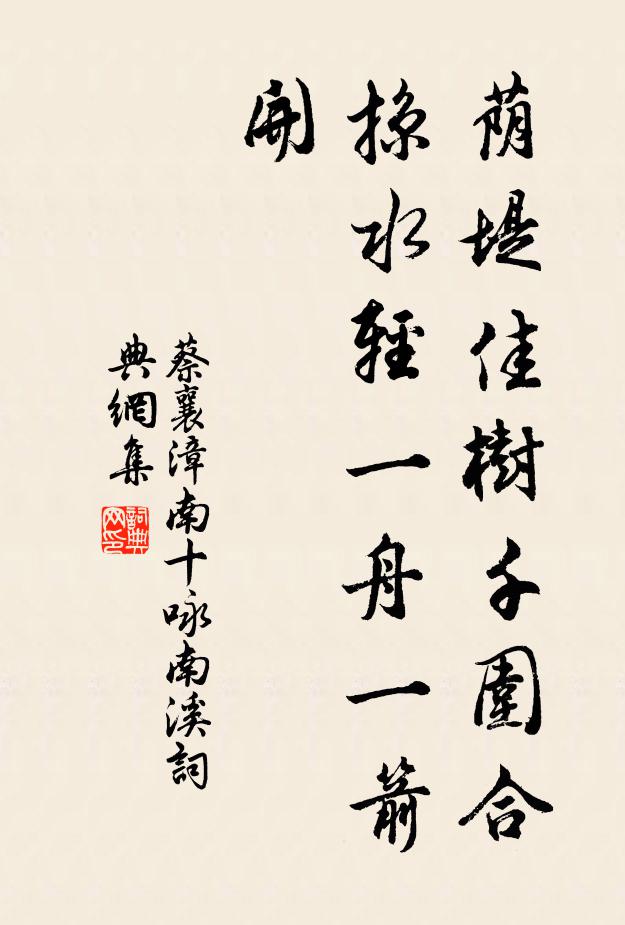 荫堤佳樹千圍合
掠水輕一舟一箭
開
蔡襄漳南十咏南溪詞
典網集
詞典
网印